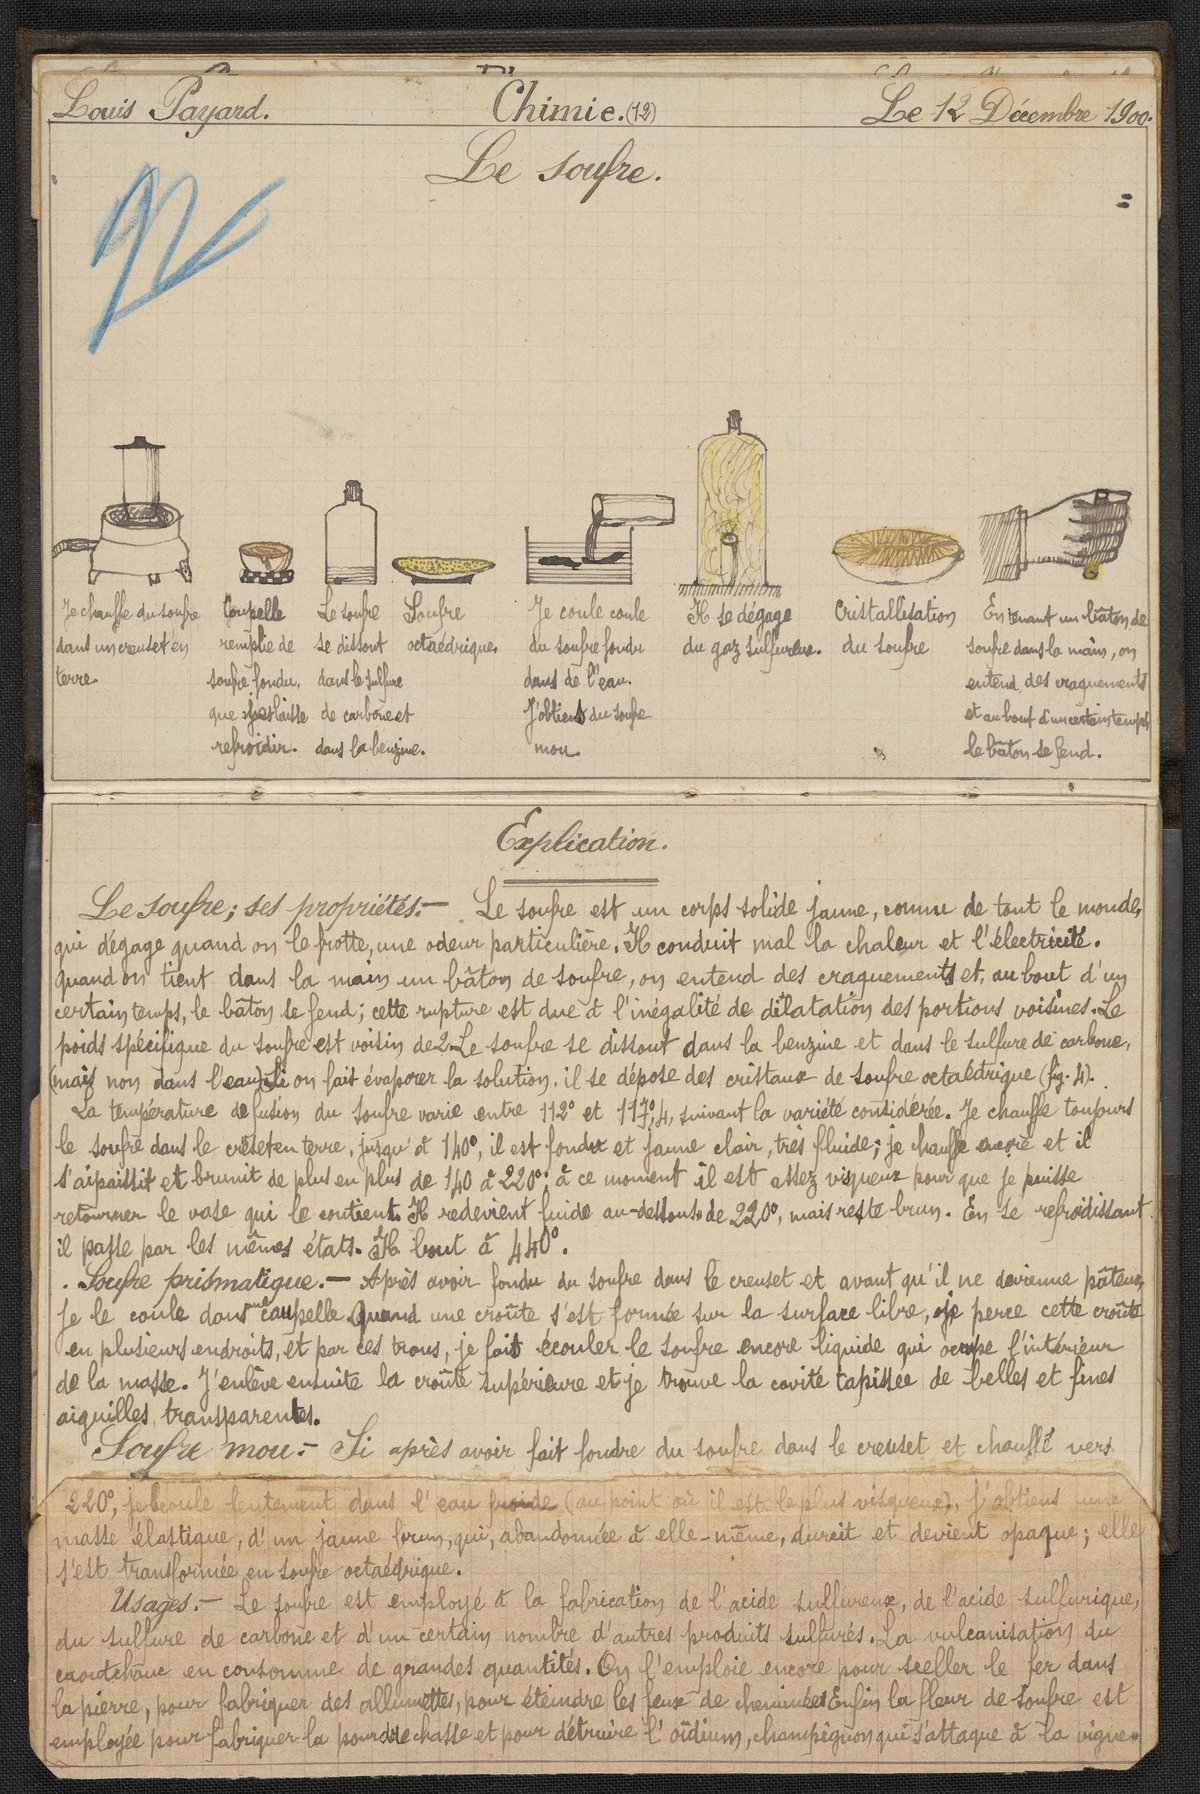 Louis Payard.
Chimie.(12)
Le 12 Décembre 1900.
Le soufre.
Je chauffe du soufre
dans un creuset en
terre.
Coupelle
remplie de
soufre fondu,
que je laisse
refroidir.
Le soufre
se dissout
dans le sulfure
de carbone et
dans la benzine.
Soufre
octaédrique.
Je coule coule
du soufre fondu
dans de l'eau.
J'obtiens du soufre
mou.
Il se dégage
du gaz sulfureux.
Cristallisation
du soufre
En tenant un bâton de
soufre dans la main, on
entend des craquements
et au bout d'un certain temps,
le bâton se fend.
Explication.
Le soufre; ses propriétés.— Le soufre est un corps solide jaune, connu de tout le monde,
qui dégage quand on le frotte, une odeur particulière. Il conduit mal la chaleur et l'électricité.
Quand on tient dans la main un bâton de soufre, on entend des craquements et, au bout d'un
certain temps, le bâton se fend; cette rupture est due à l'inégalité de dilatation des portions voisines. Le
poids spécifique du soufre est voisin de 2. Le soufre se dissout dans la benzine et dans le sulfure de carbone,
(mais non dans l'eau). Si on fait évaporer la solution, il se dépose des cristaux de soufre octaédrique (fig. 4).
La température de fusion du soufre varie entre 112° et 117°,4, suivant la variété considérée. Je chauffe toujours
le soufre dans le creset en terre, jusqu'à 140°, il est fondu et jaune clair, très fluide; je chauffe encore et il
s'aipaissit et brunit de plus en plus de 140 à 220°; à ce moment il est assez visqueux pour que je puisse
retourner le vase qui le contient. Il redevient fuide au-dessous de 220°, mais reste brun. En se refroidissant
il passe par les mêmes états. Il bout à 440°.
Soufre prismatique.— Après avoir fondu du soufre dans le creuset et avant qu'il ne devienne pâteux,
je le coule dans une coupelle. Quand une croûte s'est formée sur la surface libre, je perce cette croûte
en plusieurs endroits, et par ces trous, je fait écouler le soufre encore liquide qui occupe l'intérieur
de la masse. J'enlève ensuite la croûte supérieure et je trouve la cavité tapissée de belles et fines
aiguilles transparentes.
Soufre mou.— Si après avoir fait fondre du soufre dans le creuset et chauffé vers
220°, je le coule lentement dans l'eau froide (au point où il est le plus visqueux), j'obtiens une
masse élastique, d'un jaune brun, qui, abandonnée à elle-même, durcit et devient opaque; elle
s'est transformée en soufre octaédrique.
Usages.— Le soufre est employé à la fabrication de l'acide sulfureux, de l'acide sulfurique,
du sulfure de carbone et d'un certain nombre d'autres produits sulfurés. La vulcanisation du
caoutchouc en consomme de grandes quantités. On l'emploie encore pour sceller le fer dans
la pierre, pour fabriquer des allumettes, pour éteindre les feux de cheminées. Enfin la fleur de soufre est
employée pour fabriquer la poudre chasse et pour détruire l'oïdium, champignon qui s'attaque à la vigne.